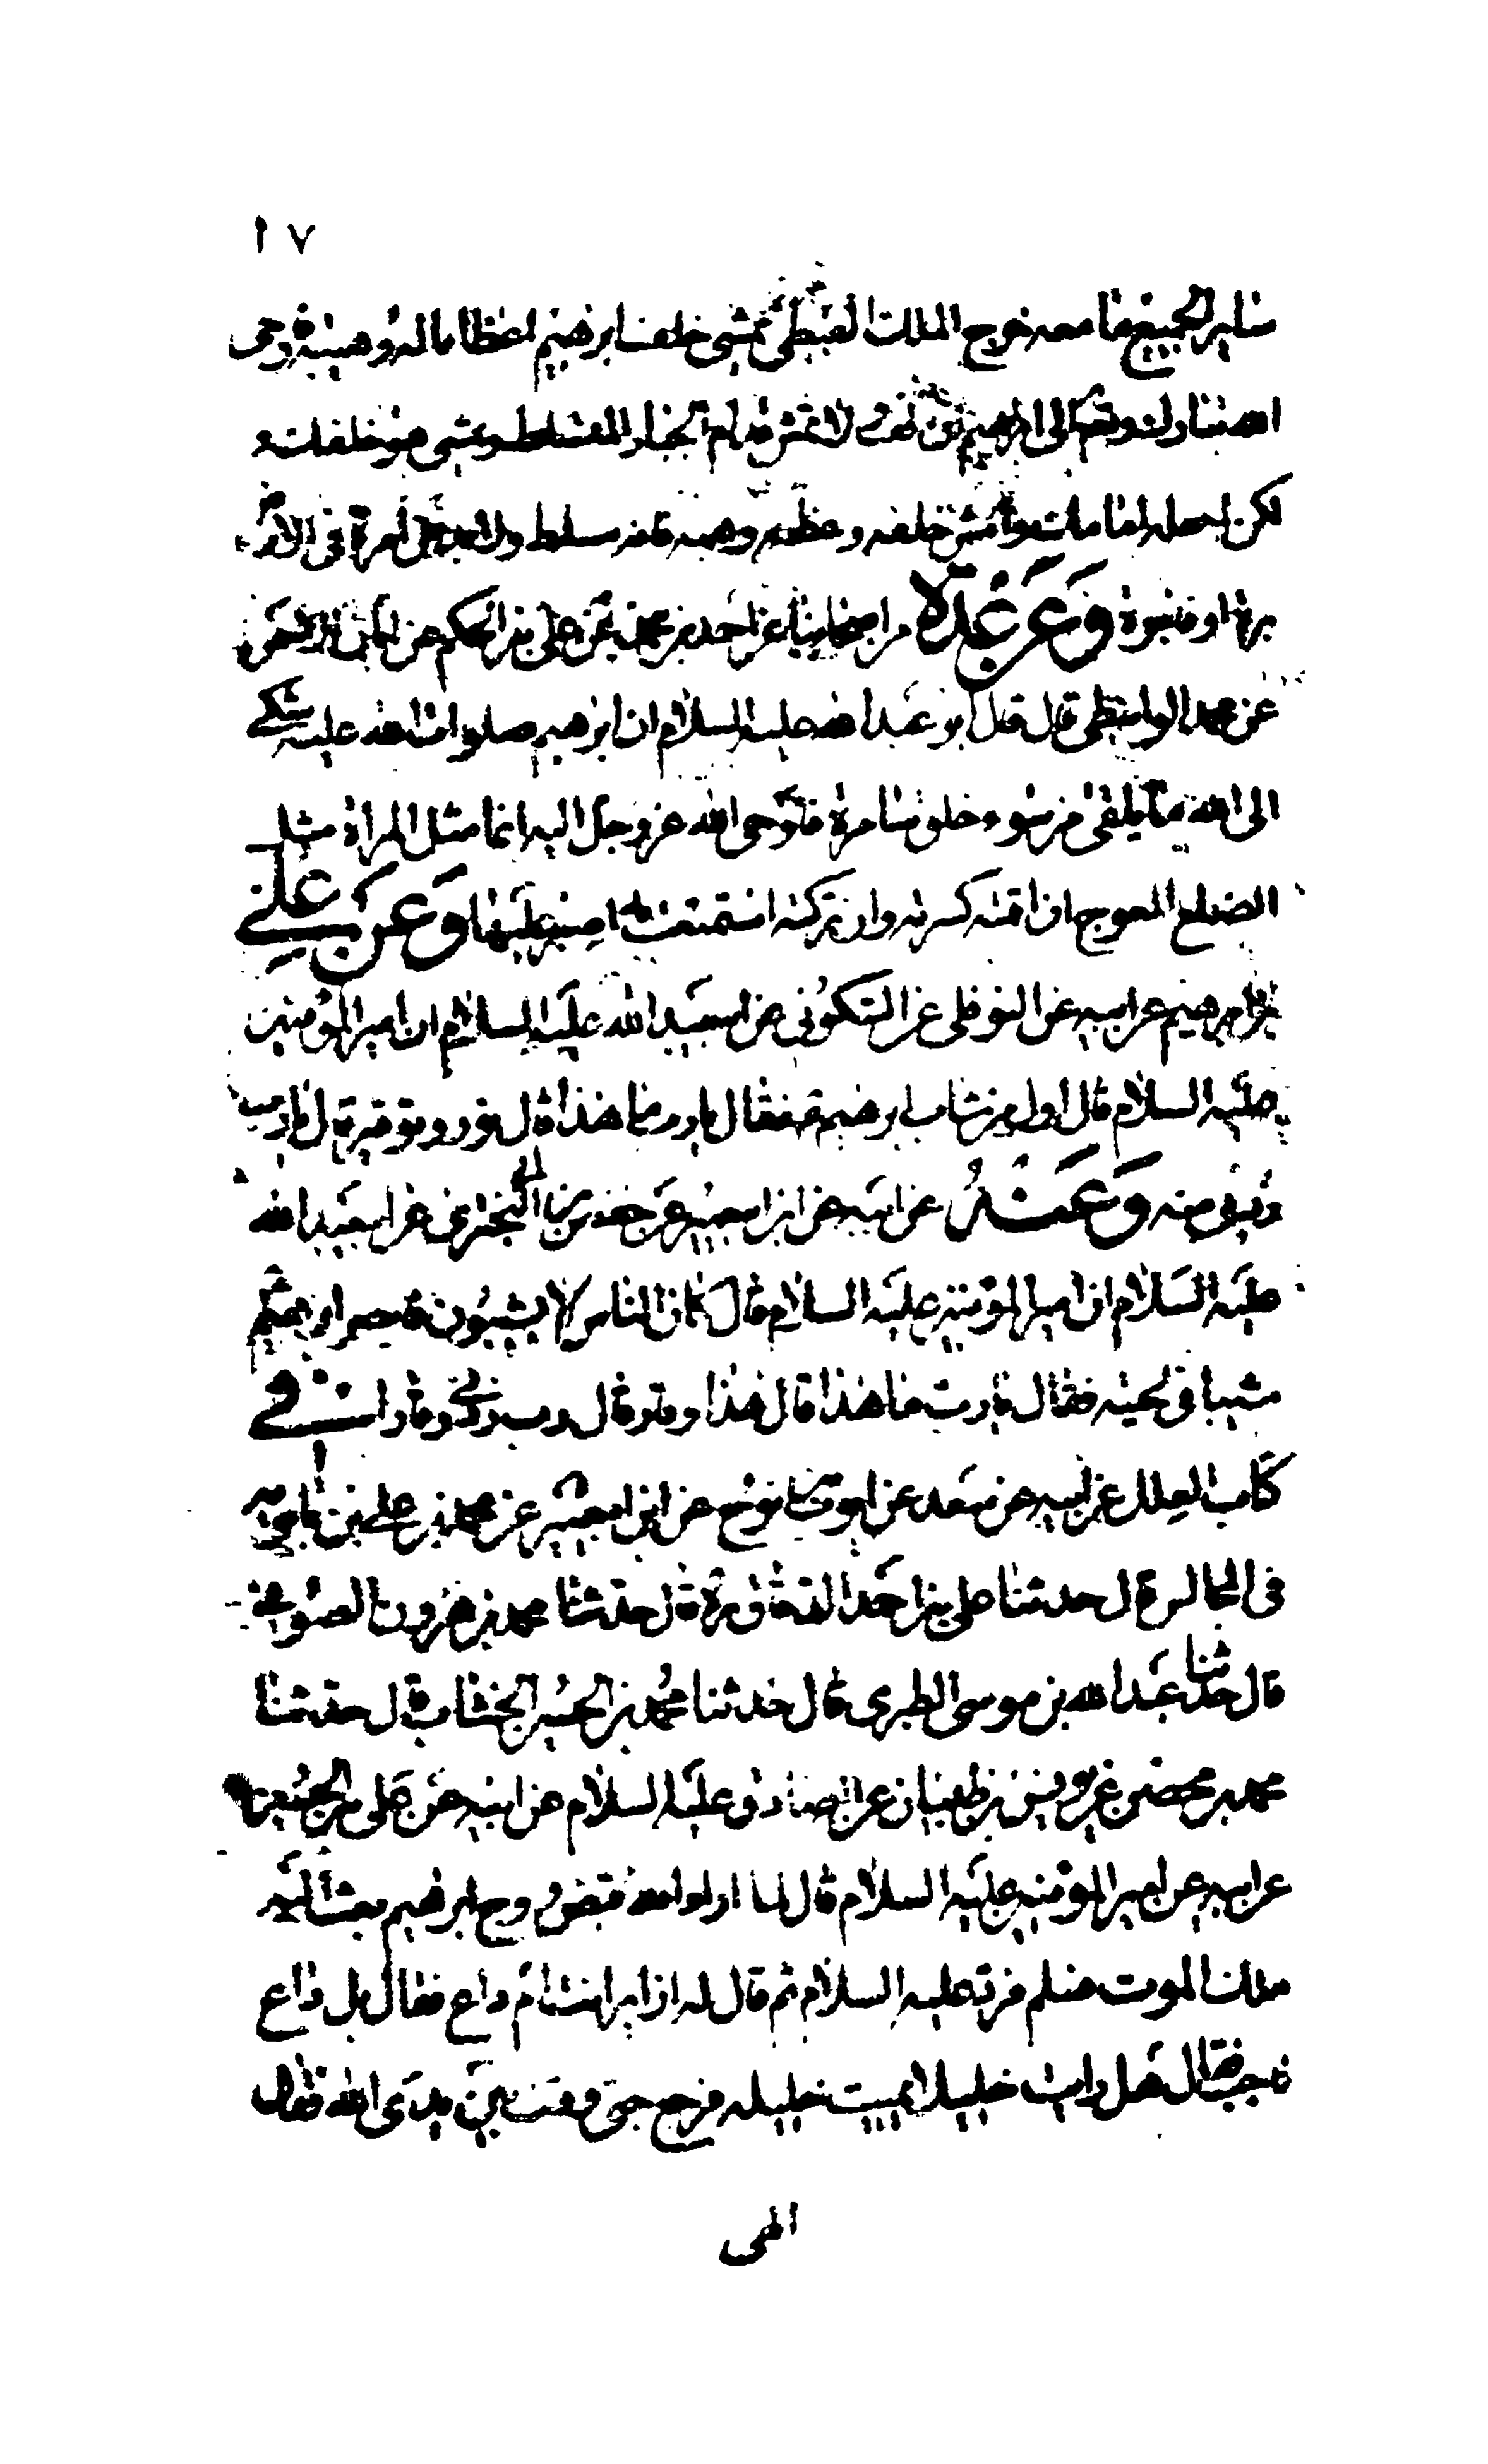 ١٧
سار بجميع ما معه خرج الملك القبطى يمشى خلف ابرهيم اعظاما له وهيبة فاوحى
الله تبارك وتعالى الى ابرهيم ان قف ولا تمش قدام الجبار المتسلط ويمشى هو خلفك و
لكن اجعله امامك وامش خلفه وعظمه وهبه فانه مسلط ولا بد من امرة فى الارض
برة او فاجرة وَعَنْ عِدّة من اصحابنا عن احمد بن محمد عن على بن الحكم عن ابان
عن محمد الواسطى قال قال ابو عبد الله عليه السلام ان ابرهيم صلوات الله عليه شكى
الى الله ما يلقى من سوء خلق سارة فاوحى الله عز وجل اليه انما مثل المراة مثل
الضلع المعوج ان اقمته كسرته وان تركته استمتعت به اصبر عليها وَعَنْ عَلِيّ
بن ابرهيم عن ابيه عن النوفلى عن السكونى عن ابيعبد الله عليه السلام ان امير المؤمنين
عليه السلام قال اول من شاب ابرهيم فقال يا رب ما هذا قال نور وتوقير قال يا رب
زدنى منه وَعَنْهُ عن ابيه عن ابن ابيعمير عن حفص بن البخترى عن ابيعبد الله
عليه السلام ان امير المؤمنين عليه السلام قال كان الناس لا يشيبون فابصر ابرهيم
شيبا فى لحيته فقال يا رب ما هذا قال هذا وقار قال رب زدنى وقارا وَفِي
كتاب العلل عن ابيه عن سعد عن ايوب بن نوح عن ابن ابيعمير عن محمد بن على بن بابويه
فى المجالس قال حدثنا على بن احمد الدقاق ره قال حدثنا محمد بن هرون الصوفى
قال حدثنا عبد الله بن موسى الطبرى قال حدثنا محمد بن الحسين الخشاب قال حدثنا
محمد بن محصن عن يونس بن ظبيان عن الصادق عليه السلام عن ابيه عن على بن الحسين
عن ابيه عن امير المؤمنين عليه السلام قال لما اراد الله قبض روح ابرهيم بعث اليه
ملك الموت فسلم فرد عليه السلام ثم قال له ازائر انت ام داع فقال بل داع
فاجب فقال هل رايت خليلا يميت خليله فرجع حتى وقف بين يدى الله فقال
الهى